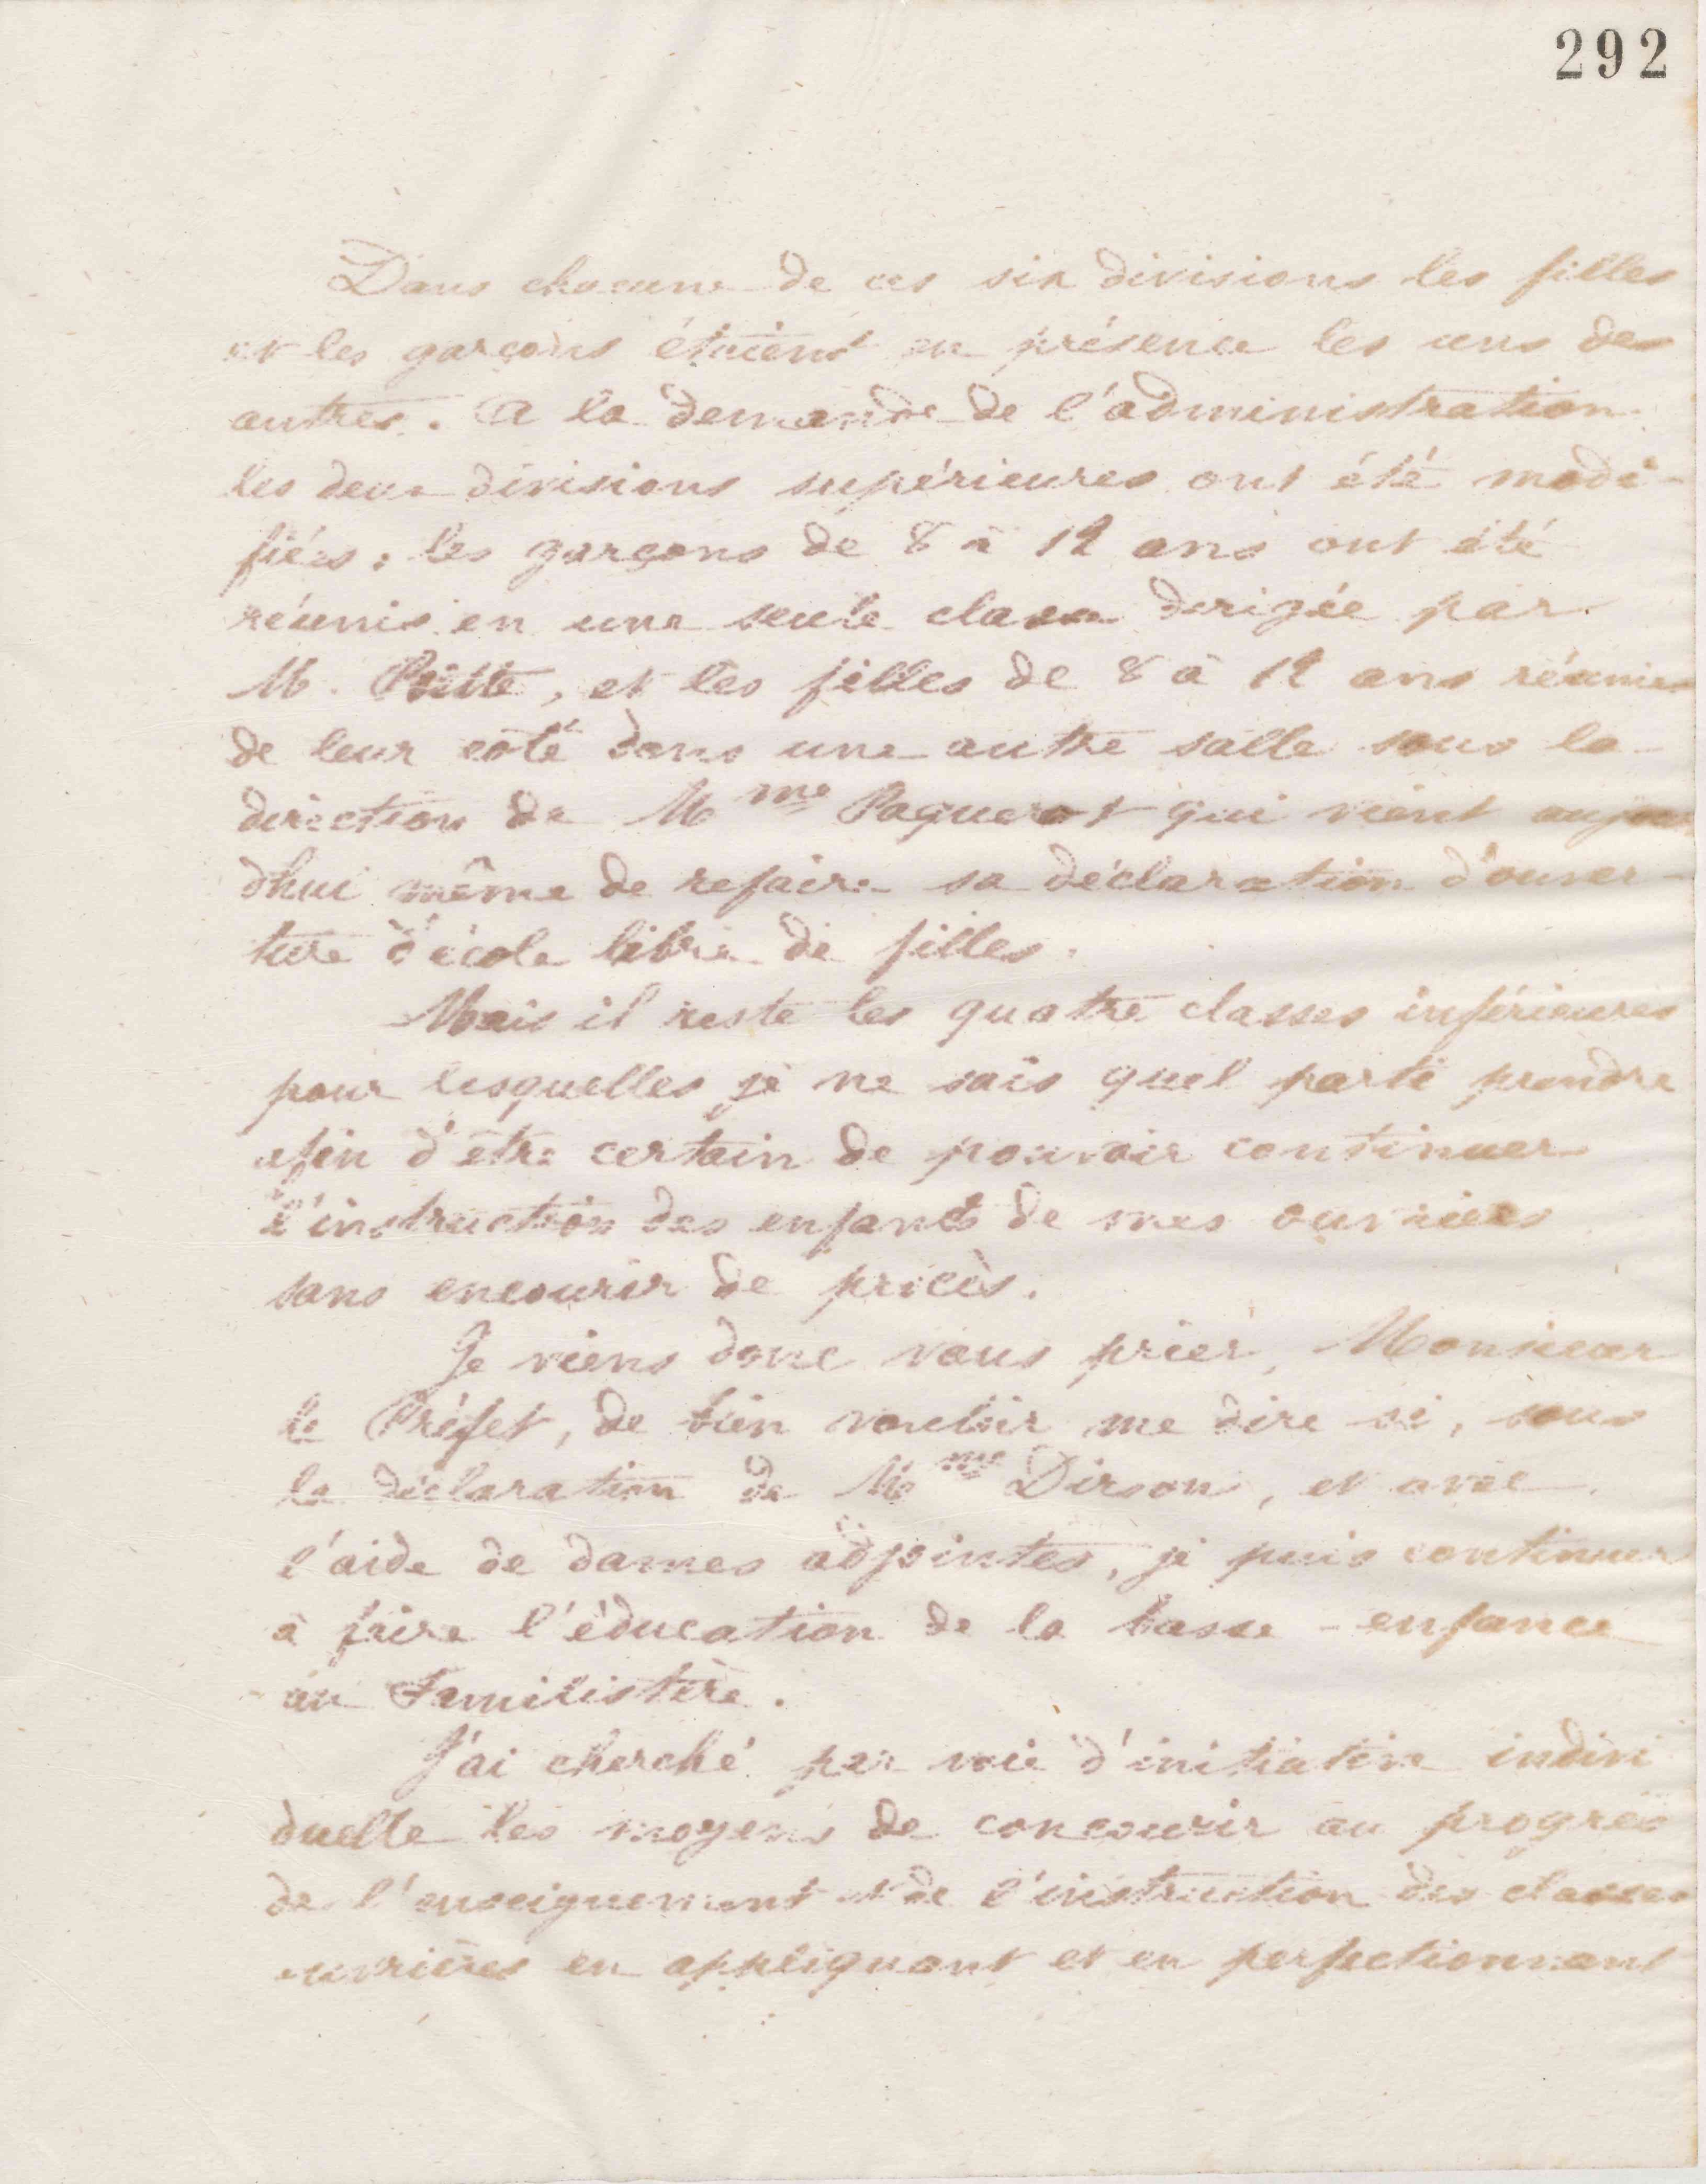 292
Dans chacune de ces six divisions les filles
et les garçons étaient en présence les uns des
autres. A la demande de l'administration
les deux divisions supérieures ont été modi-
fiées, les garçons de 8 à 12 ans ont été
réunis en une seule classe dirigée par
M. Poitte, et les filles de 8 à 12 ans réunies
de leur côté dans une autre salle sous la
direction de Mme Paquerot qui vient aujour
d'hui même de refaire sa déclaration d'ouver-
ture d'école libre de filles.
Mais il reste les quatre classes inférieures
pour lesquelles je ne sais quel parti prendre
afin d'être certain de pouvoir continuer
l'instruction des enfants de mes ouvriers
sans encourir de procès.
Je viens donc vous prier, Monsieur
le Préfet, de bien vouloir me dire si, sous
la déclaration de Mme Dirson, et avec
l'aide de dames adjointes, je puis continuer
à faire l'éducation de la basse-enfance
au Familistère.
J'ai cherché par voie d'initiative indivi
duelle les moyens de concourir au progrès
de l'enseignement et de l'instruction des classes
ouvrières en appliquant et en perfectionnant